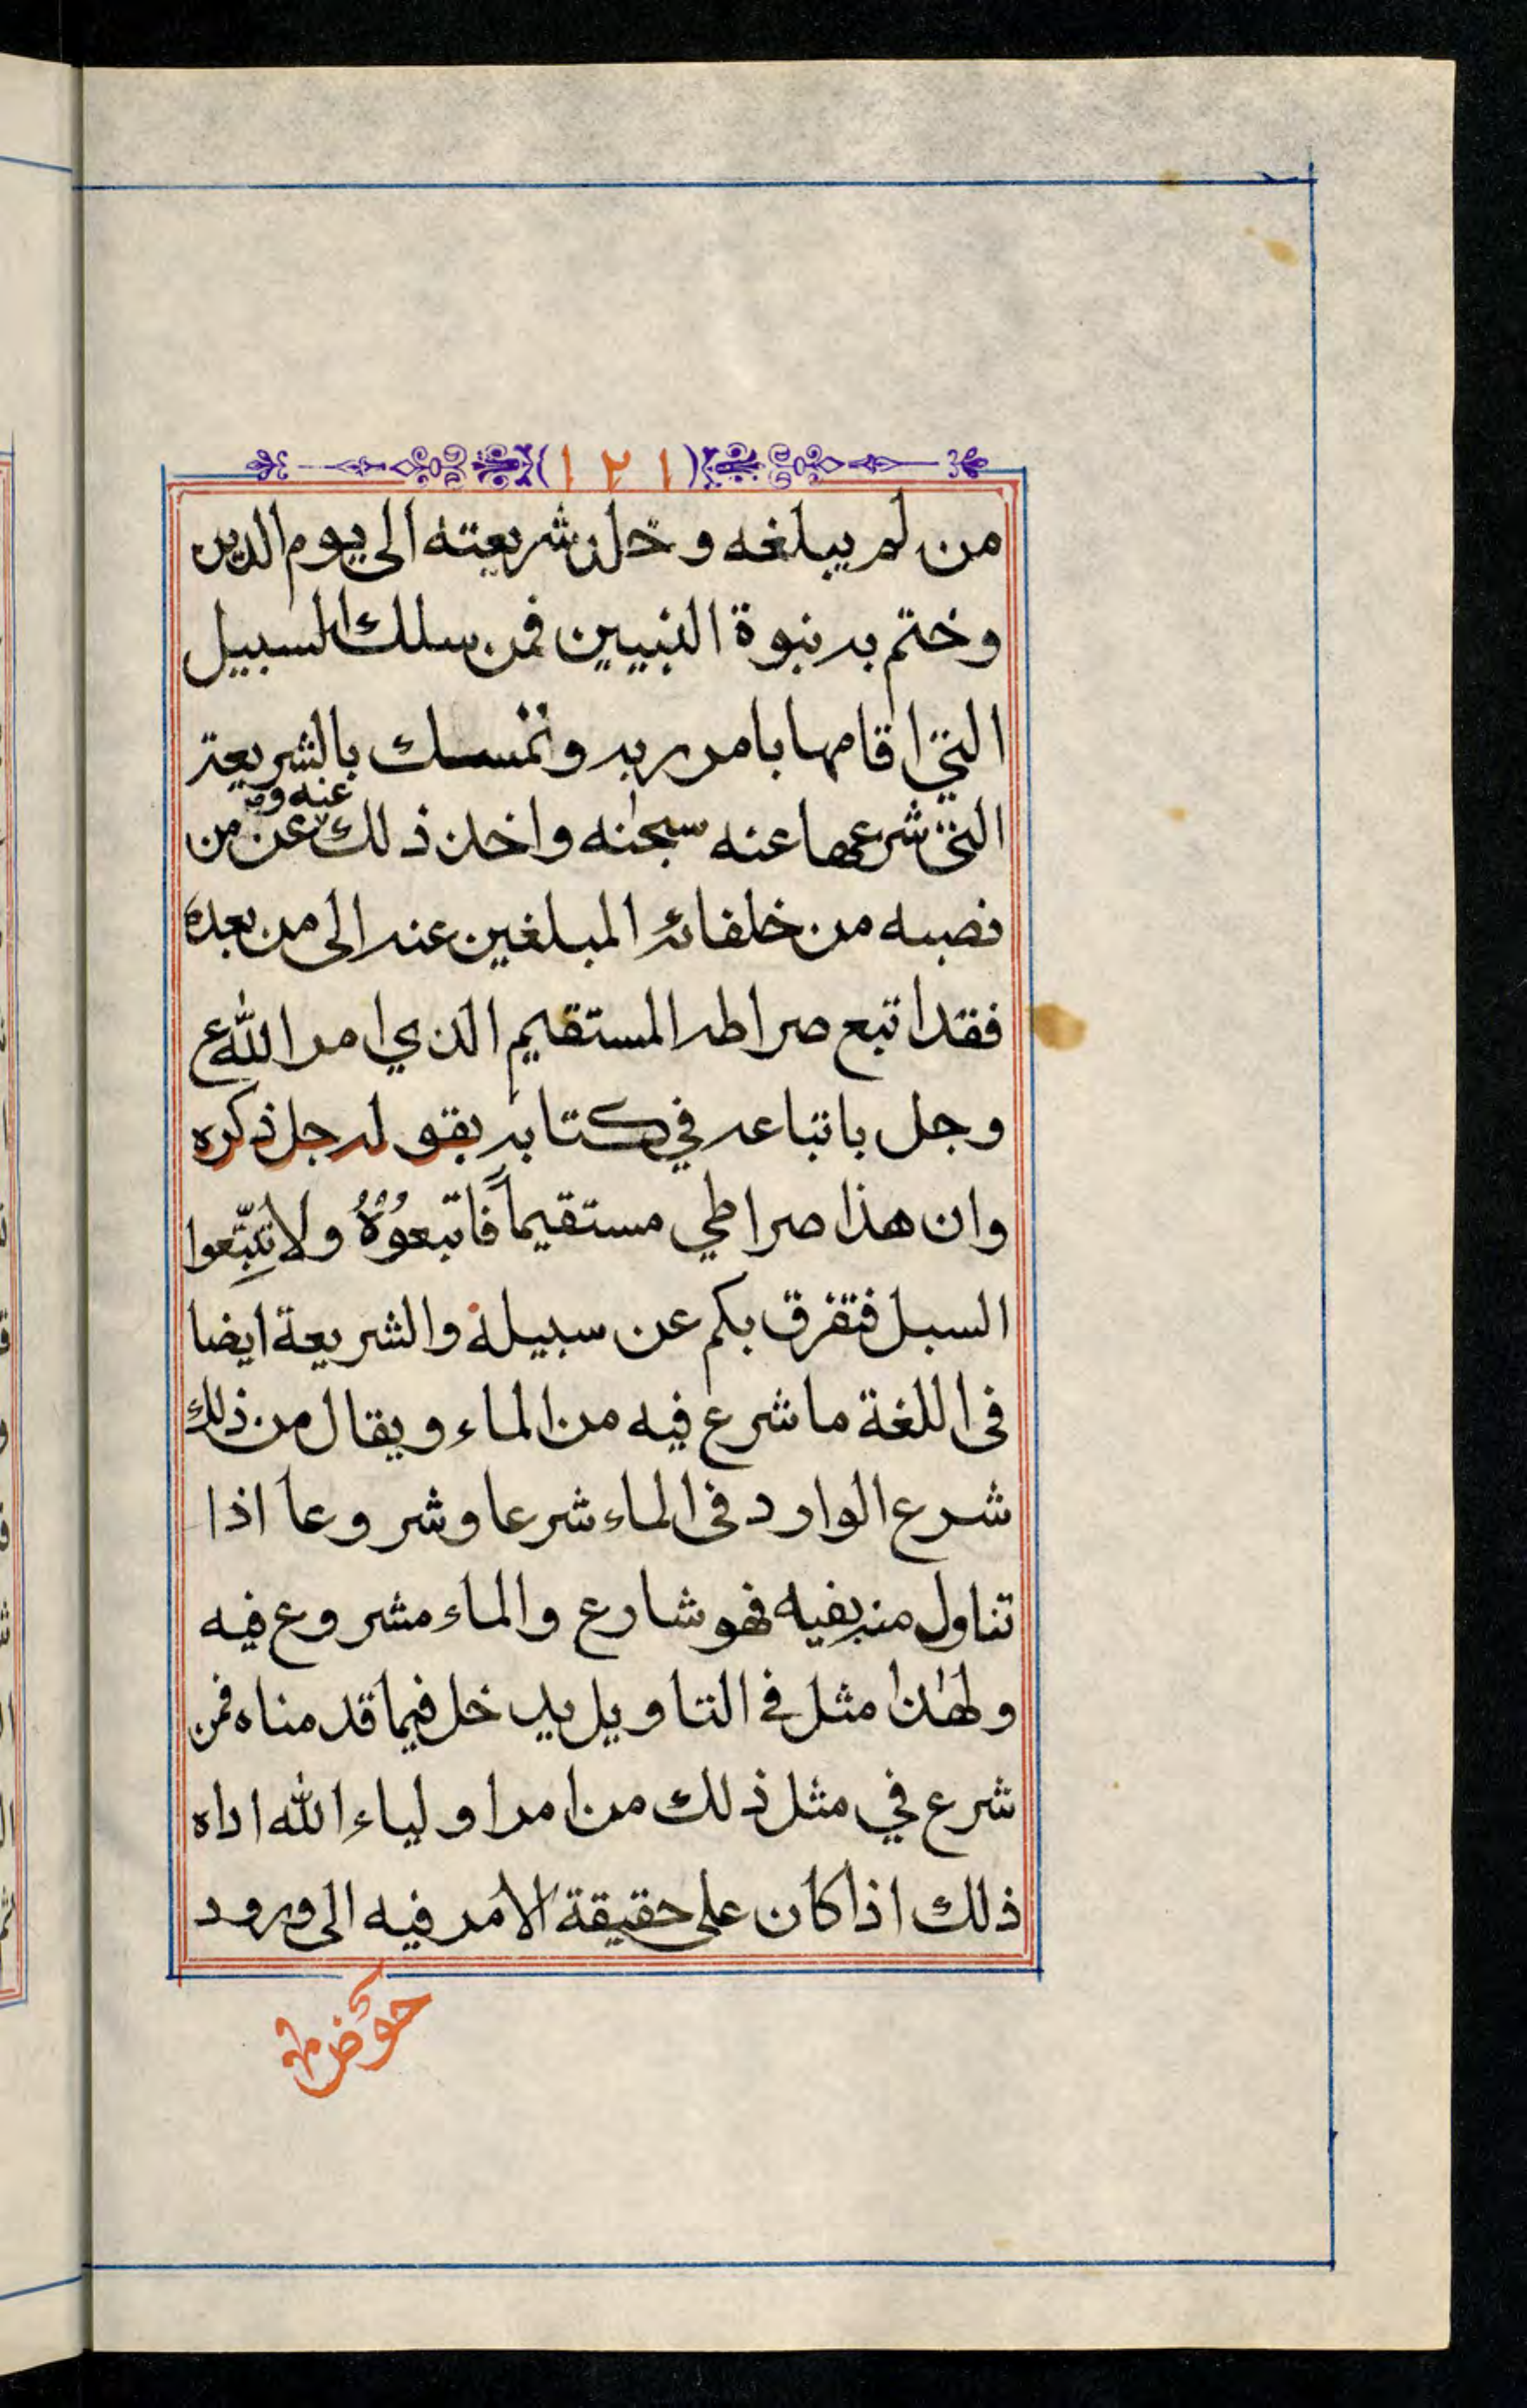 (١٢١)
من لم يبلغه وخلد شريعته الى يوم الدين
وختم به نبوة النبيين فمن سلك السبيل
التي اقامها بامر ربه وتمسك بالشريعة
عنه و
التي شرعها عنه سبحنه واخذ ذلك عن من
نصبه من خلفائه المبلغين عنه الى من بعده
فقد اتبع صراطه المستقيم الذي امر الله ع
وجل باتباعه في كتابه بقوله جل ذكره
وان هذا صراطي مستقيماً فاتبعوُهُ ولا تتّبعوا
السبل فتفرق بكم عن سبيله والشريعة ايضا
فى اللغة ما شرع فيه من الماء ويقال من ذلك
شرع الوارد فى الماء شرعا وشروعا اذا
تناول منه بفيه فهو شارع والماء مشروع فيه
ولهذا مثل في التاويل يدخل فيما قدمناه فمن
شرع في مثل ذلك من امر اولياء الله اداه
ذلك اذا كان على حقيقة الامر فيه الى ورود
حوض